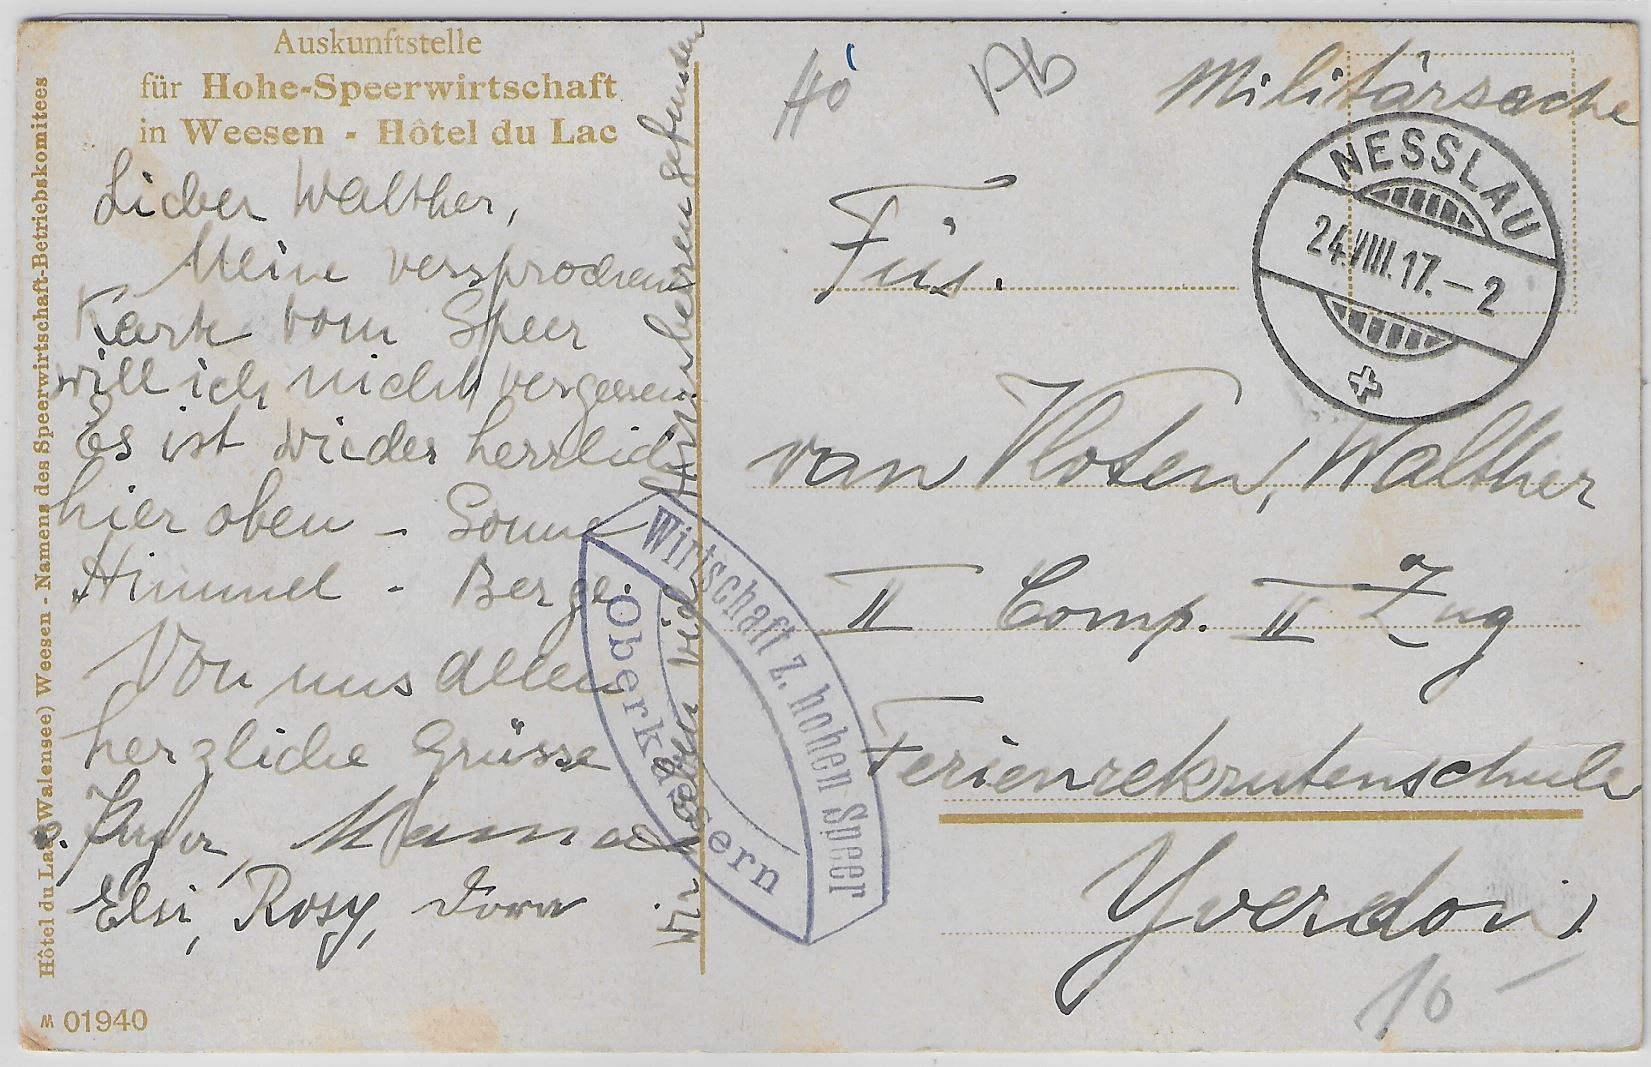 Auskunftstelle
für Hohe-Speerwirtschaft
in Weesen - Hôtel du Lac
Hôtel du Lac (Walensee) Weesen - Namens des Speerwirtschaft-Betriebskomitees
Lieber Walther,
Meine versprochene
Karte vom Speer
will ich nicht vergessen.
Es ist wieder herrlich
hier oben - Sonne
Himmel - Berge.
Von uns allen
herzliche Grüsse
Mama
Elsi, Rosy, Dora
Wir haben viel beeren gefunden
M 01940
Wirtschaft z. hohen Speer
Oberkäsern
Hö
Ab
Militärsache
NESSLAU
24.VIII.17.-2
Füs.
van Vloten, Walther
II Comp. II Zug
Ferienrekrutenschule
Yverdon
10 -